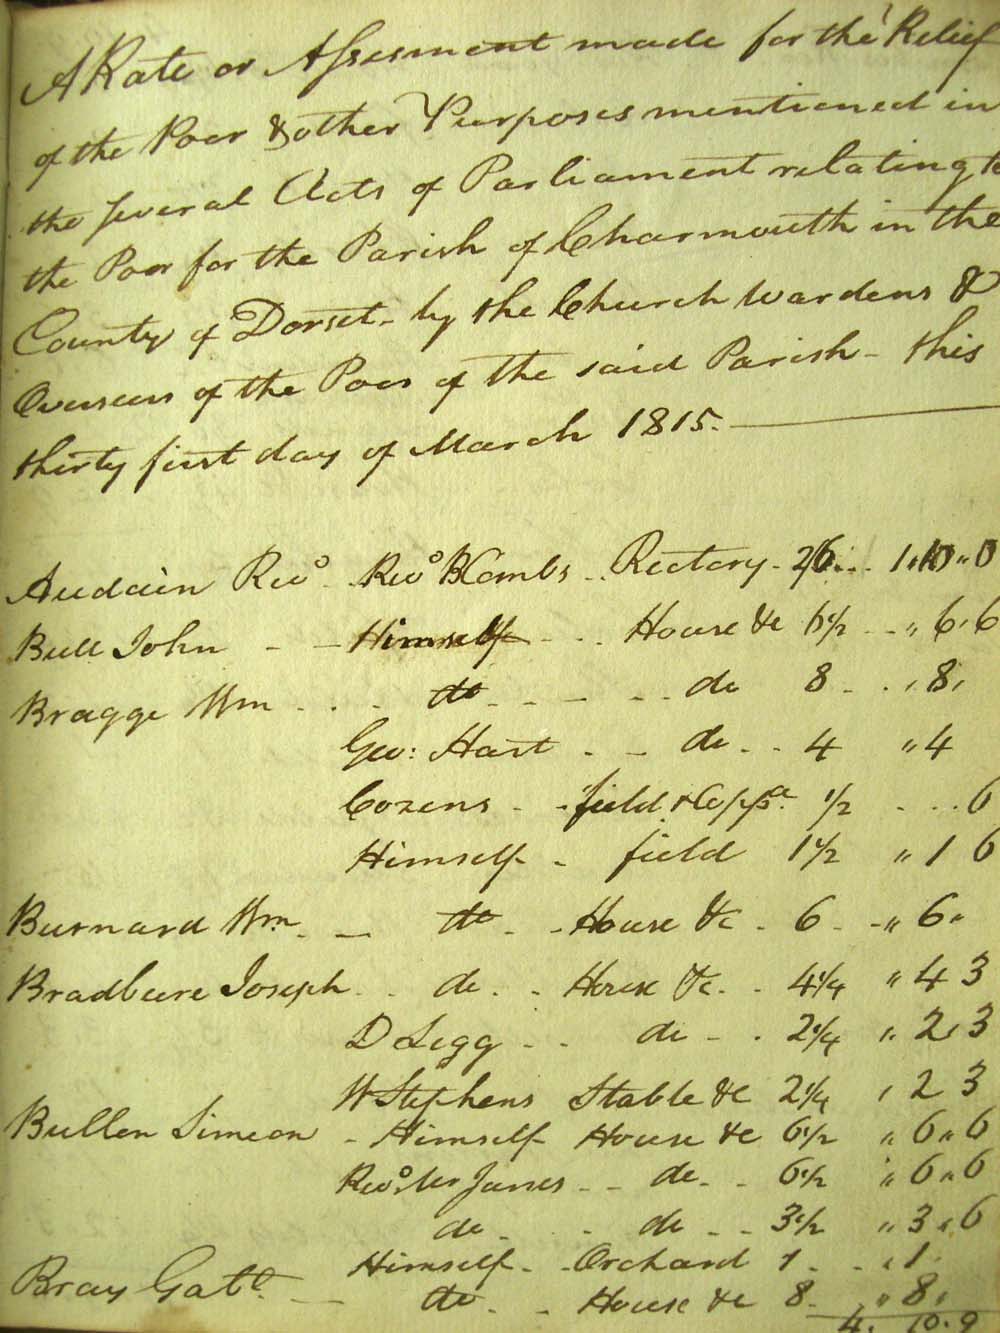 A Rate or Assesment made for the Relief
of the Poor & other Purposes mentioned in
the several Acts of Parliament relating to
the Poor for the Parish of Charmouth in the
County of Dorset - by the Church Wardens &
Overseers of the Poor of the said Parish - this
thirty first day of March 1815.
Audain Revd. Revd B Combs .. Rectory - 26 ... 1 " 10 " 0
Bull John - - Himself - .. House &c 6 1/2 - " 6 " 6
Bragge Wm . . . do - - - .. do 8 - . " 8 "
Geo: Hart . - do . . 4 " 4
Cozens . . field & Coppse 1/2 . . . 6
Himself - field 1 1/2 " 1 6
Burnard Wm. - do . . House &c . 6 . - " 6 "
Bradbeere Joseph . . do . . House &c . . 4 1/4 " 4 3
D Legg . . do - . 2 1/4 " 2 " 3
W Stephens Stable &c 2 1/4 " 2 3
Bullen Simeon - Himself House &c 6 1/2 " 6 " 6
Revd. Mr Janes - - do . . 6 1/2 " 6 " 6
do . . do - - 3 1/2 " 3 " 6
Himself . . Orchard 1 . . " 1
Bray Gabl. - do . . House &c 8 . " 8 "
4 . 10 . 9